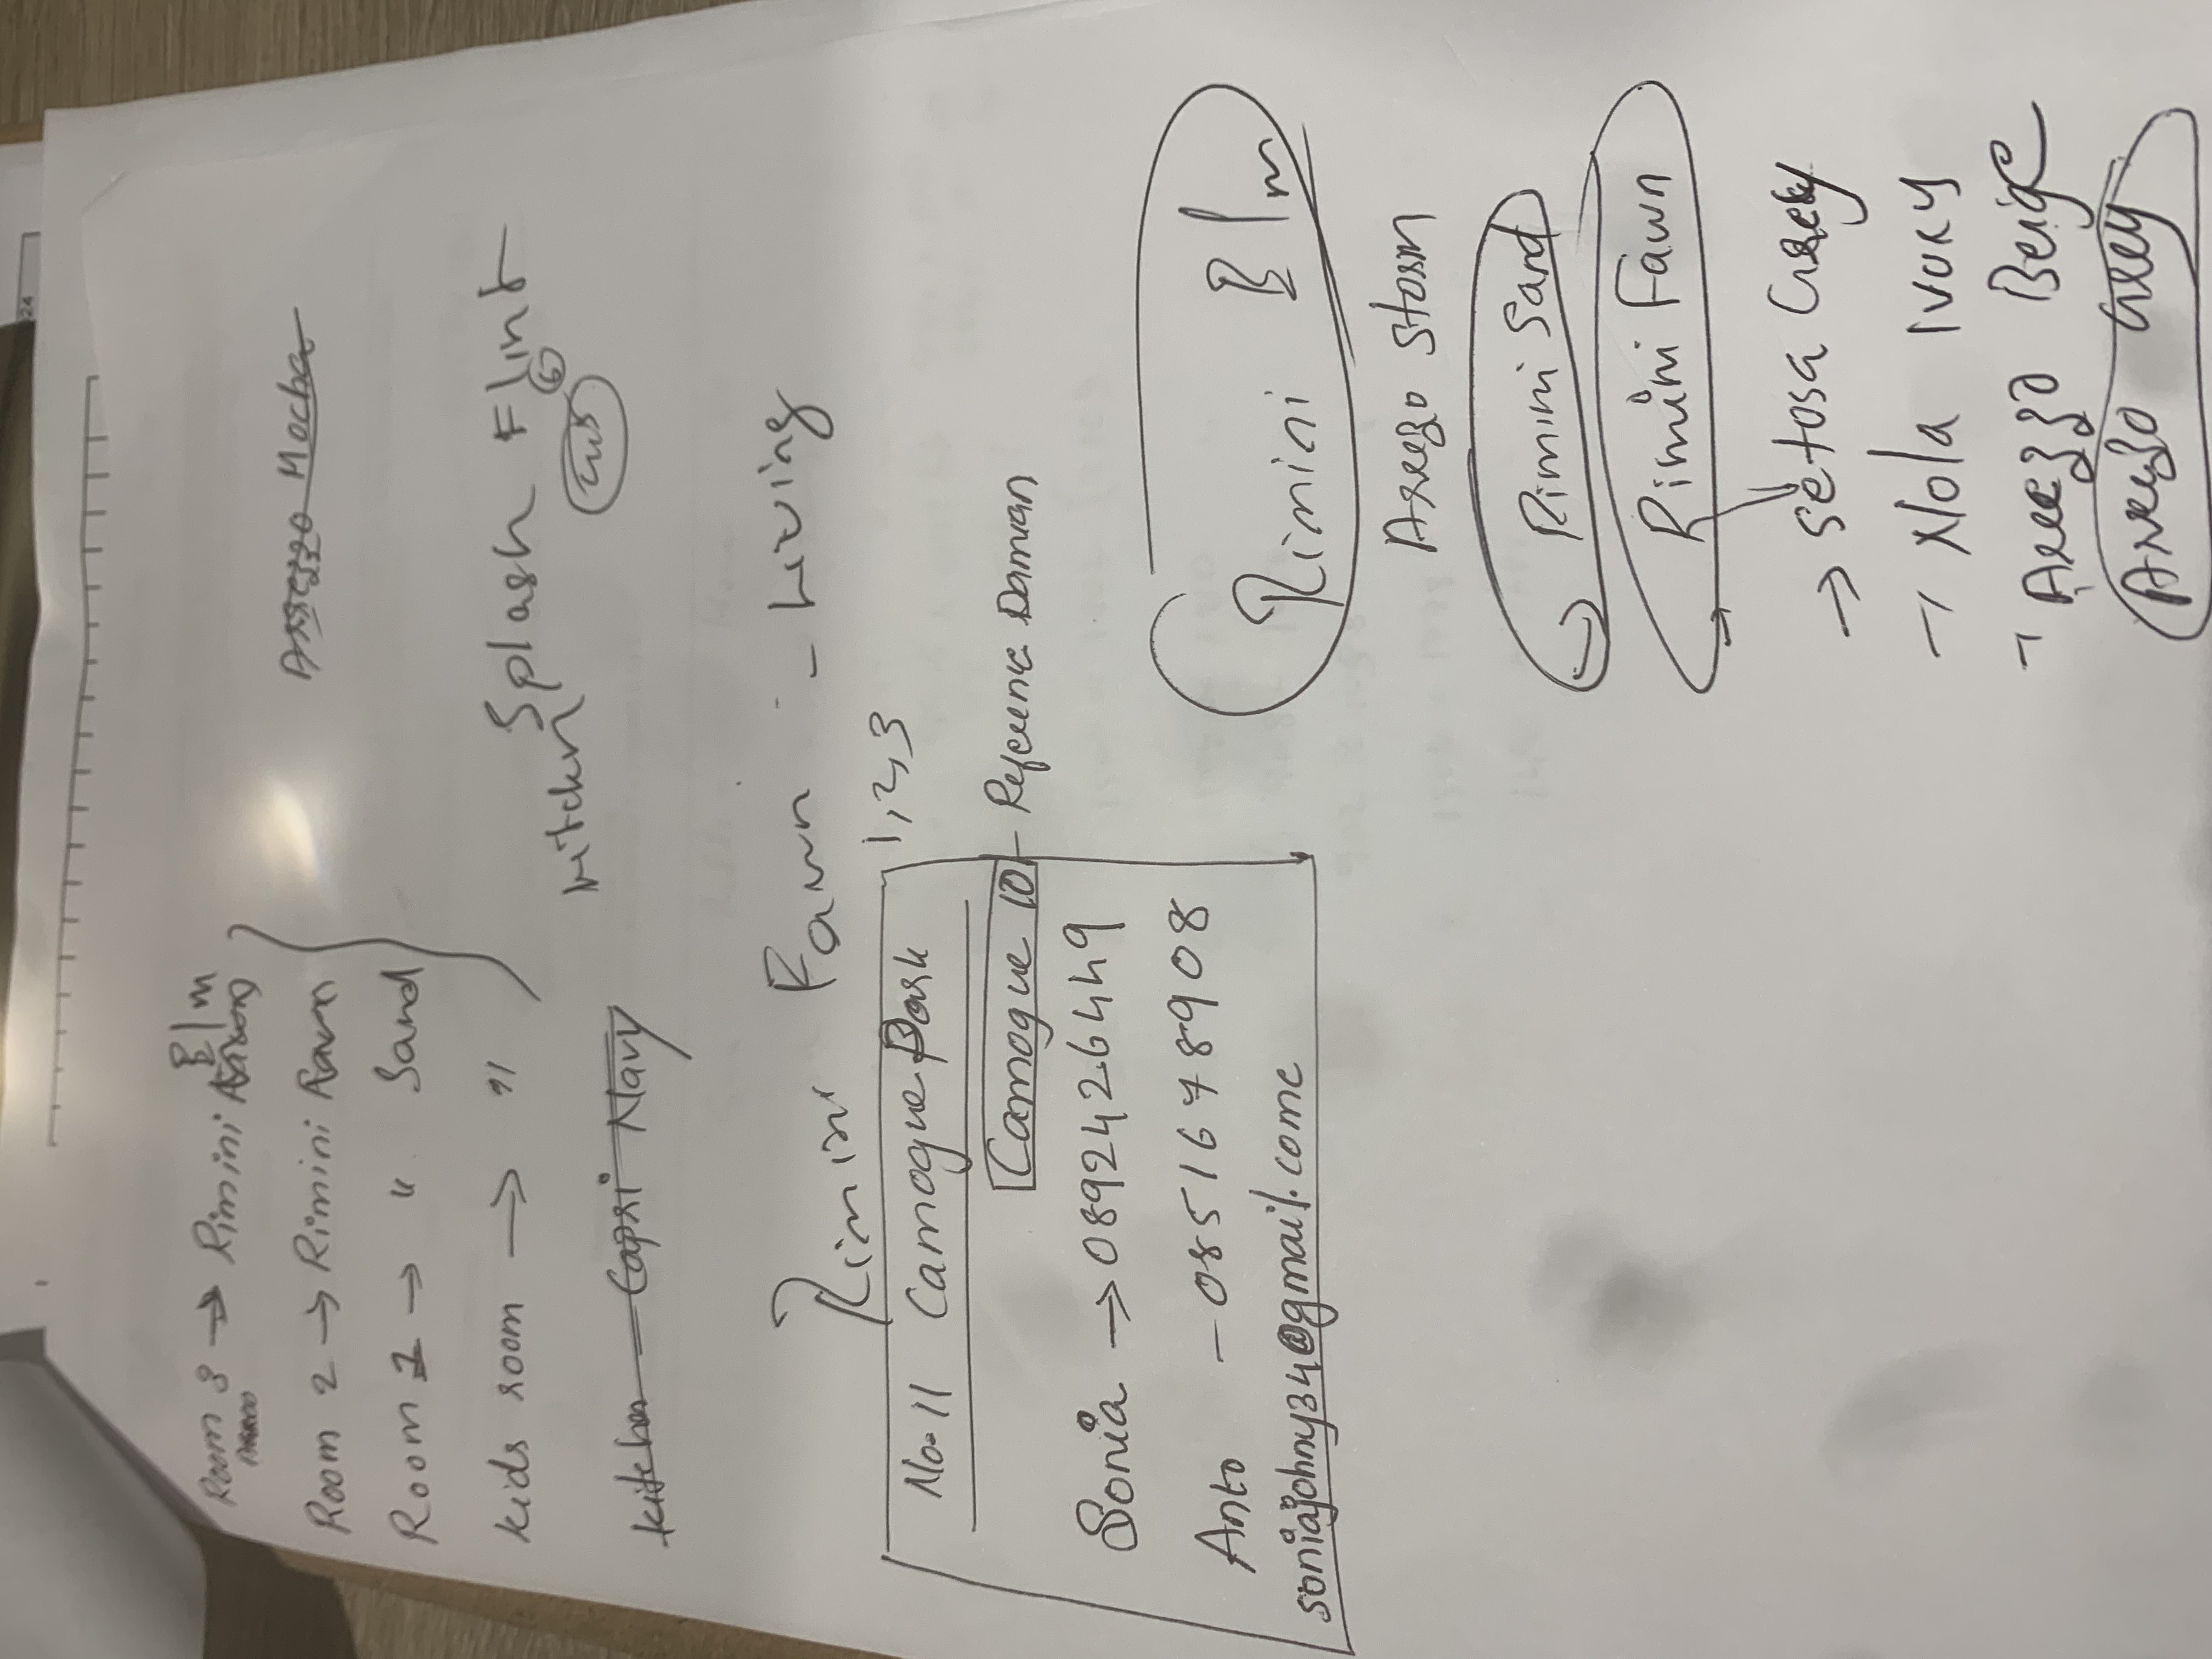 Arezzo Mocha
Room 3 → Rimini Elm
Room 2 → Rimini Fawn
Room 1 → " Sand
kids room → "
Splash Flint
kitchen
kitchen - Capri Navy
Rimini Fawn - Living
1,2,3
No. 11 Camogue Park
Camogue 10 - Reference Damian
Sonia → 0892426449
Anto - 0851678908
soniajohny34@gmail.come
Rimini Elm
Arezo Storm
Rimini Sand
Rimini Fawn
→ Setosa Grey
→ Nola Ivory
→ Arezzo Beige
Arezzo Grey
24